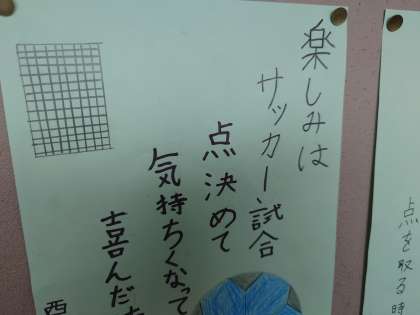 楽しみは
サッカー試合
点決めて
気持ちくなって
喜んだ
西
点を取る時